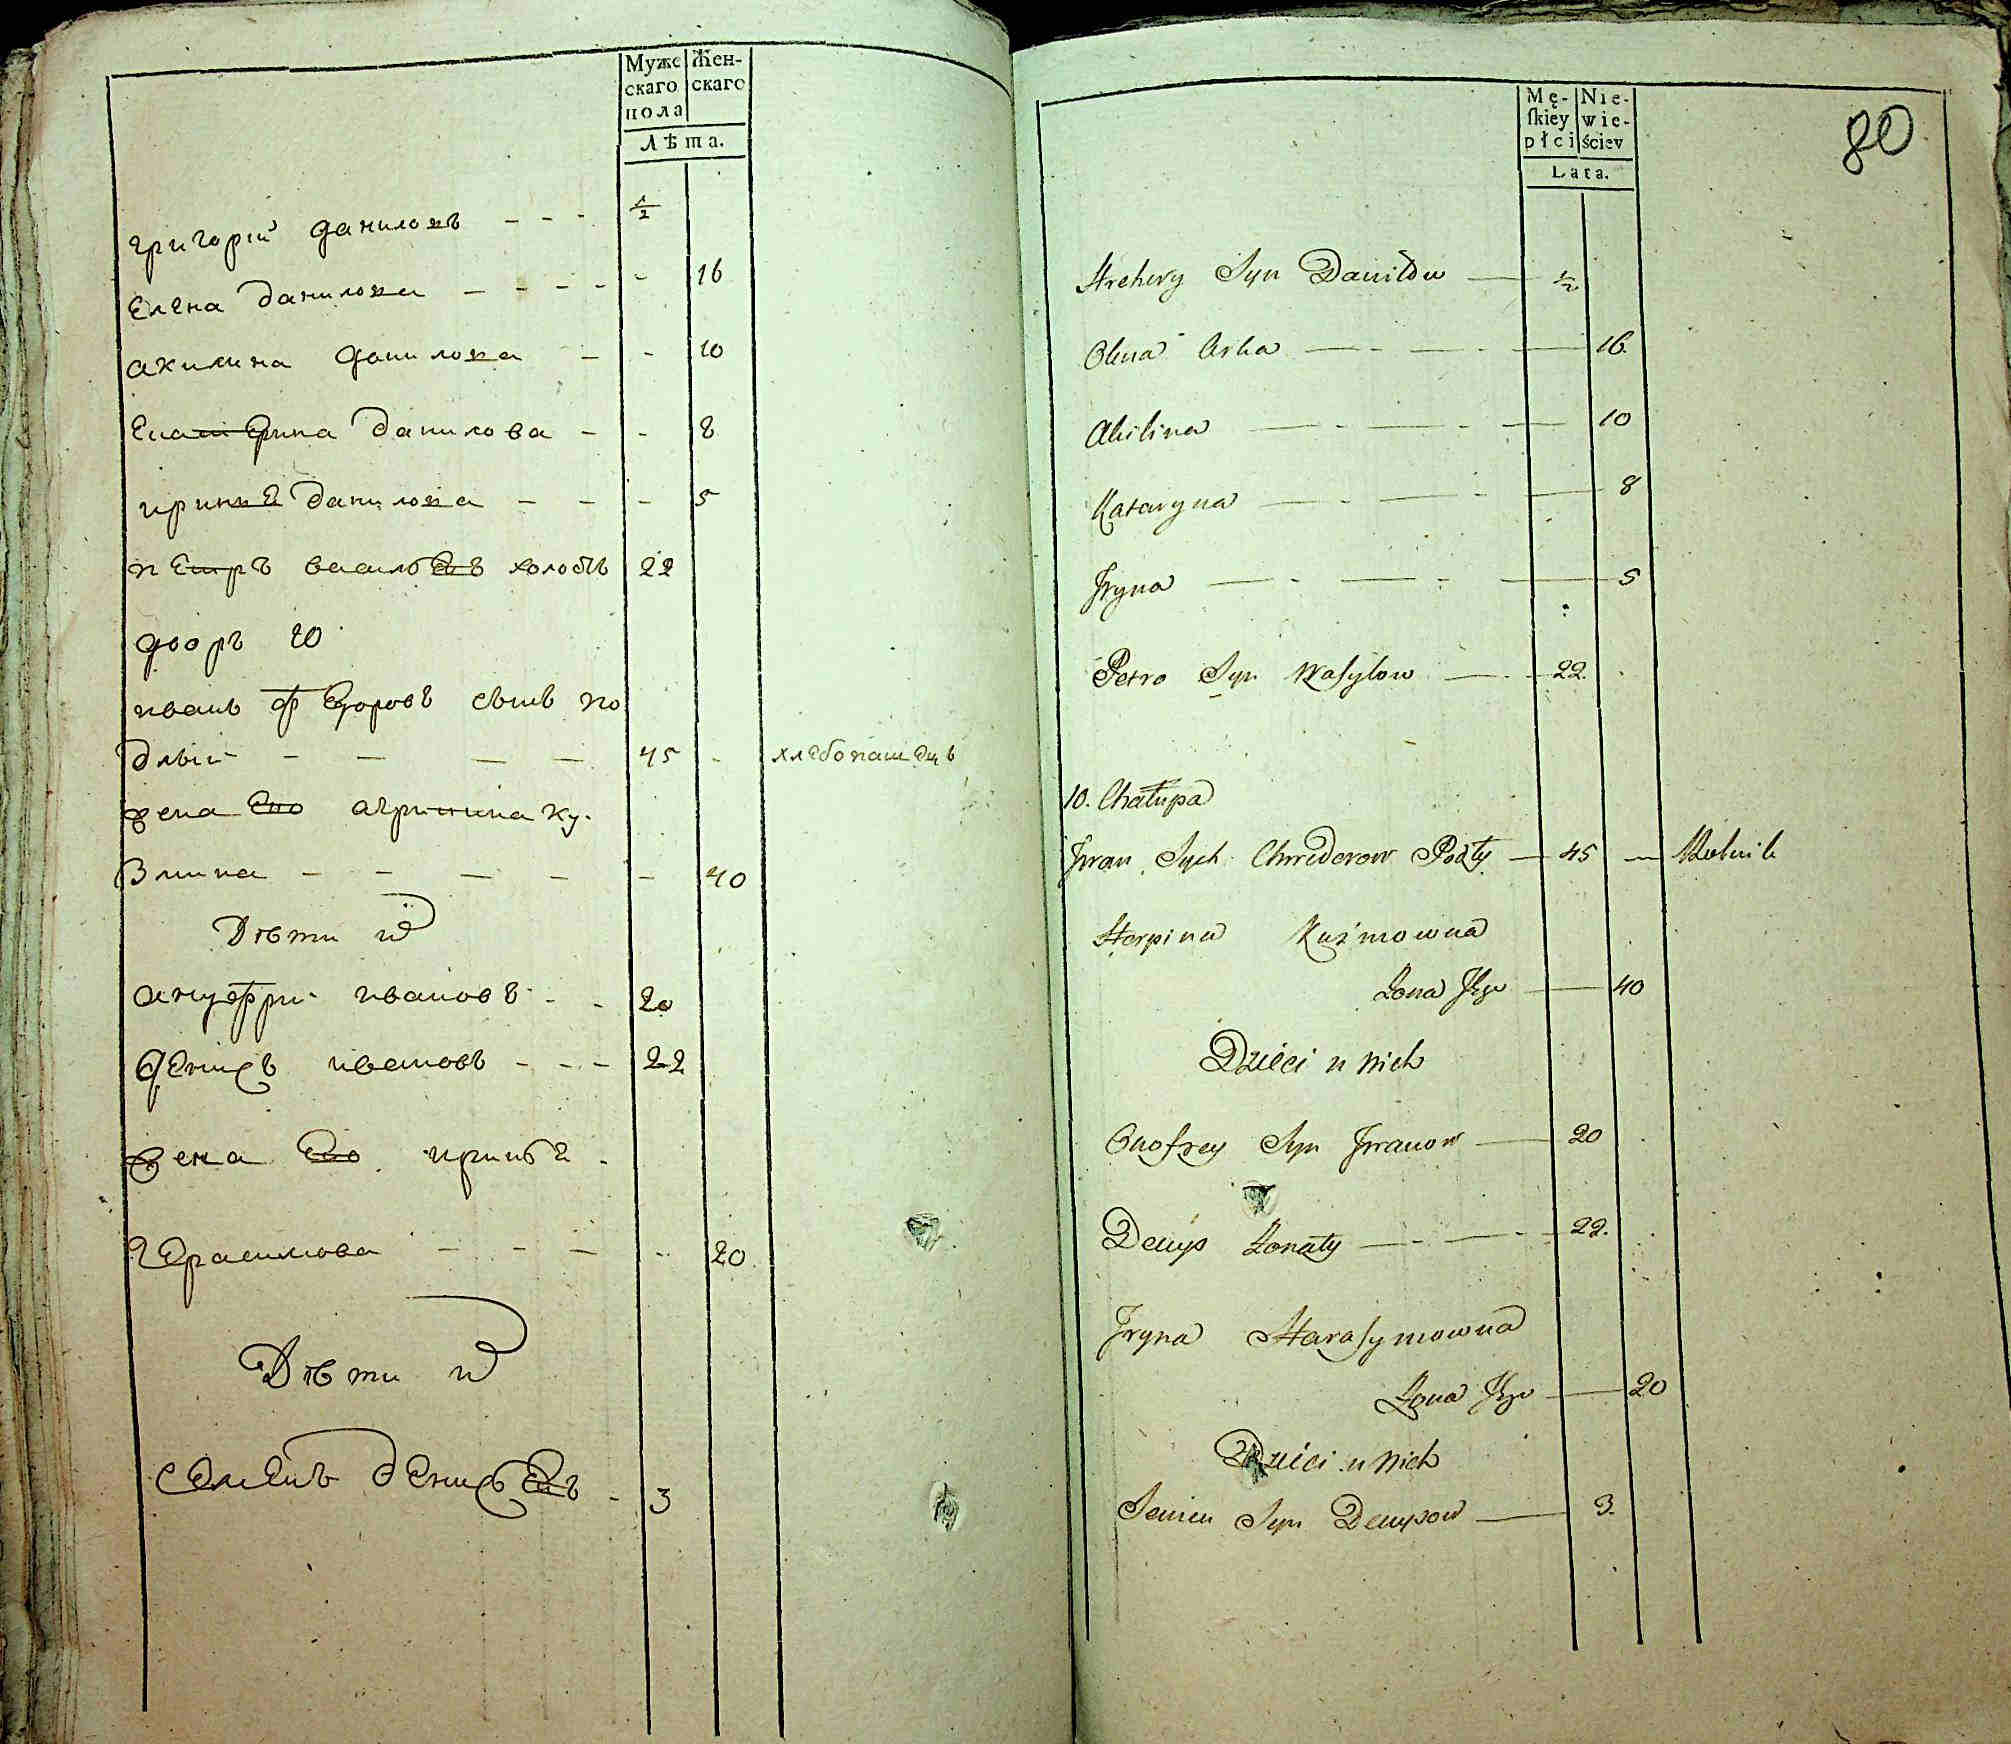 Муже
скаго
пола
Жен-
скаго
Лѣта.
григорій даниловъ - - - 1/2
Елена данилова - - - - - 16
акилина данилова - - 10
Екатерина данилова - - 8
ирина данилова - - - 5
петръ васильевъ холостъ 22
дворъ 10
иванъ федоровъ сынъ по
длый - - - - 45 - хлебопашецъ
жена его агрипина ку-
змина - - - - - 40
Дѣти их
ануфри ивановъ - - 20
денисъ ивановъ - - - 22
жена его ирина
герасимова - - - - 20
Дѣти их
семенъ денисовъ - 3
Mę-
skiey
płci
Nie-
wie-
ściey
Lata.
80
Hrehory Syn Daniłow — 1/2
Olena Corka — - — - — 16.
Akilina — - — - — 10
Kataryna — - — - — 8
Jryna — - — - — 5
Petro Syn Wasylow — - 22.
10. Chałupa
Jwan Sych Chwedorow Podły — 45 — Rolnik
Horpina Kuźmowna
Zona Jego — 40
Dzieci u nich
Onofrey Syn Jwanow — 20
Denys Zonaty — - — - - 22.
Jryna Harasymowna
Zona Jego — 20
Dzieci u nich
Semen Syn Denysow — 3.